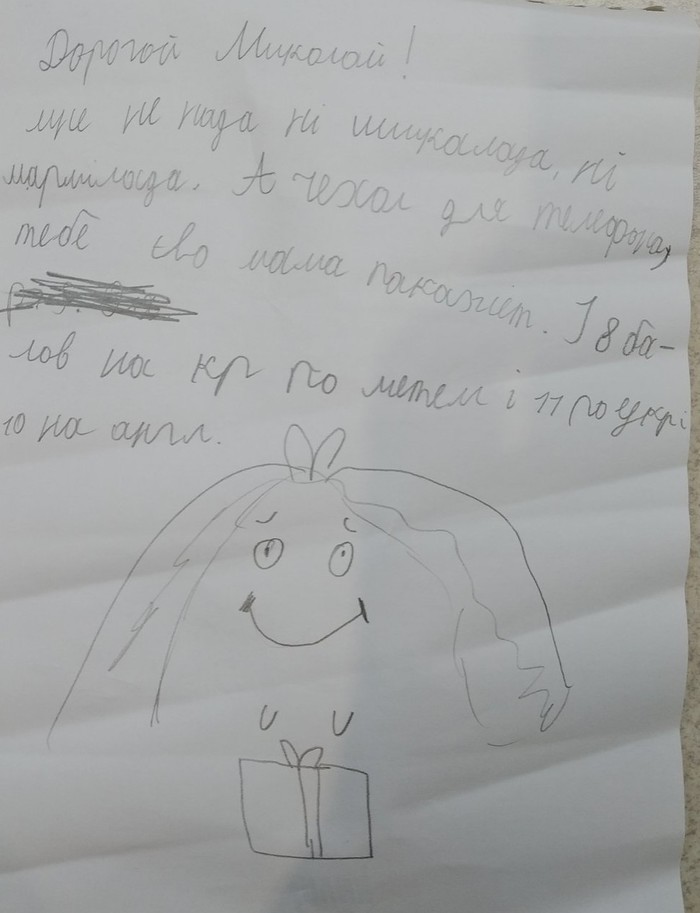 Дорогой Миколай!
мне не нада ні шикалада, ні
марmілада. А чехол для телефона,
тебе єво мама пакажит. І 8 ба-
лов на кр по метем і 11 по укрі
10 на англ.